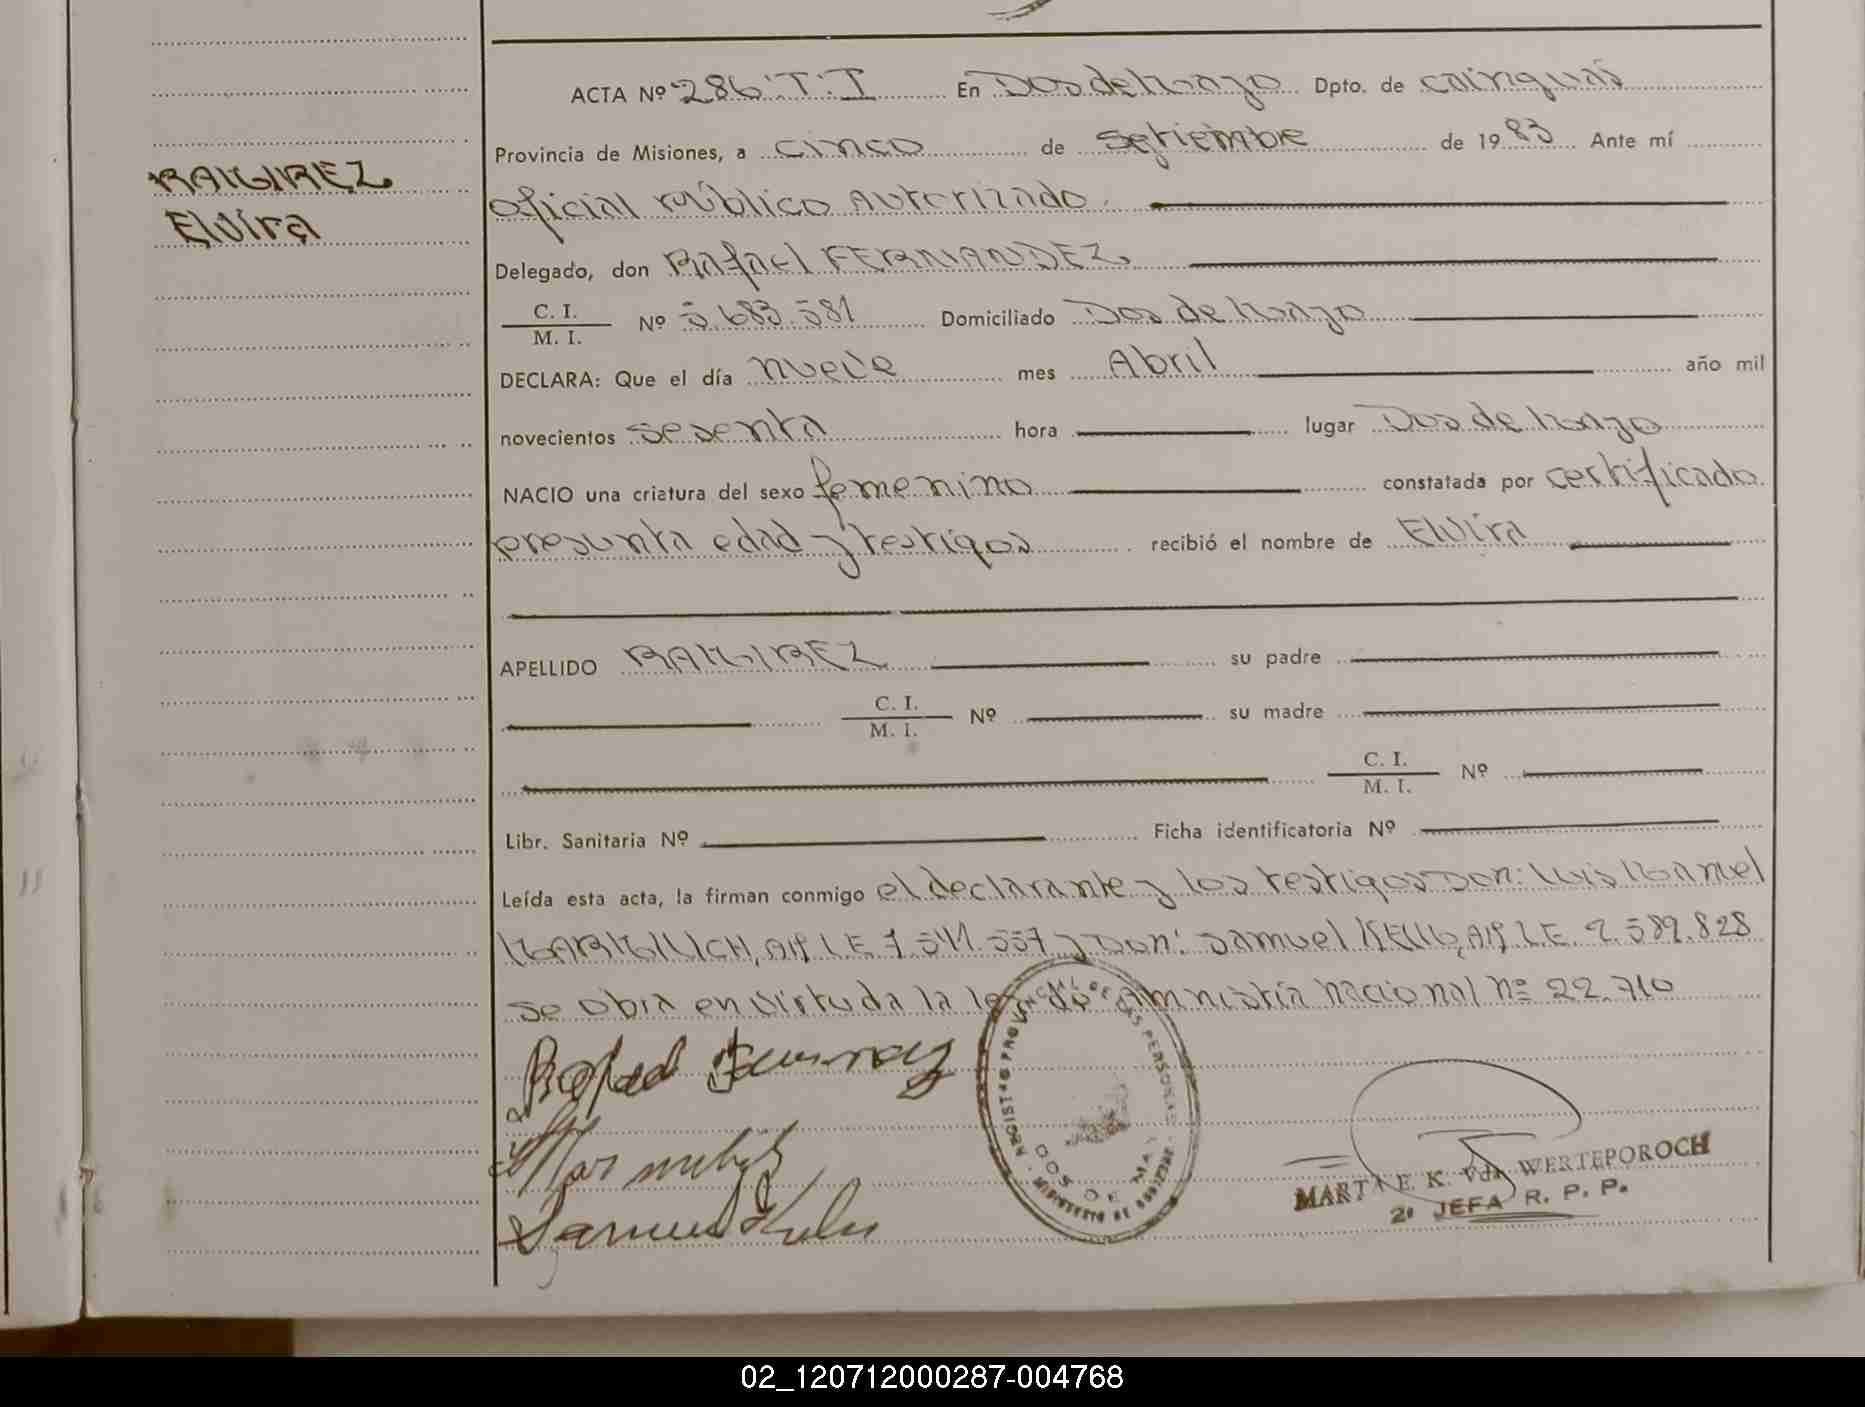 ACTA Nº 286 T: I En Dos de Mayo Dpto. de Cainguas
Provincia de Misiones, a cinco de setiembre de 1983 Ante mí
RAMIREZ
Elvira
oficial Público Autorizado.
Delegado, don Rafael FERNANDEZ.
C. I.
M. I.
Nº 5.683.581 Domiciliado Dos de Mayo
DECLARA: Que el día nueve mes Abril año mil
novecientos sesenta hora lugar Dos de Mayo
NACIO una criatura del sexo femenino constatada por certificado
presunta edad y testigos recibió el nombre de Elvira
APELLIDO RAMIREZ su padre
C. I.
M. I.
Nº su madre
C. I.
M. I.
Nº
Libr. Sanitaria Nº Ficha identificatoria Nº
Leída esta acta, la firman conmigo el declarante y los testigos Don: Luis Manuel
L.E. 7.541.557 y Don: Samuel L.E. 2.589.828
se obra en virtud a la ley de Amnistía nacional nº 22.710
REGISTRO PROVINCIAL DE LAS PERSONAS
DOS DE MAYO
MINISTERIO DE GOBIERNO
MARTA E. K. Vda WERTEPOROCH
2º JEFA R. P. P.
02_120712000287-004768